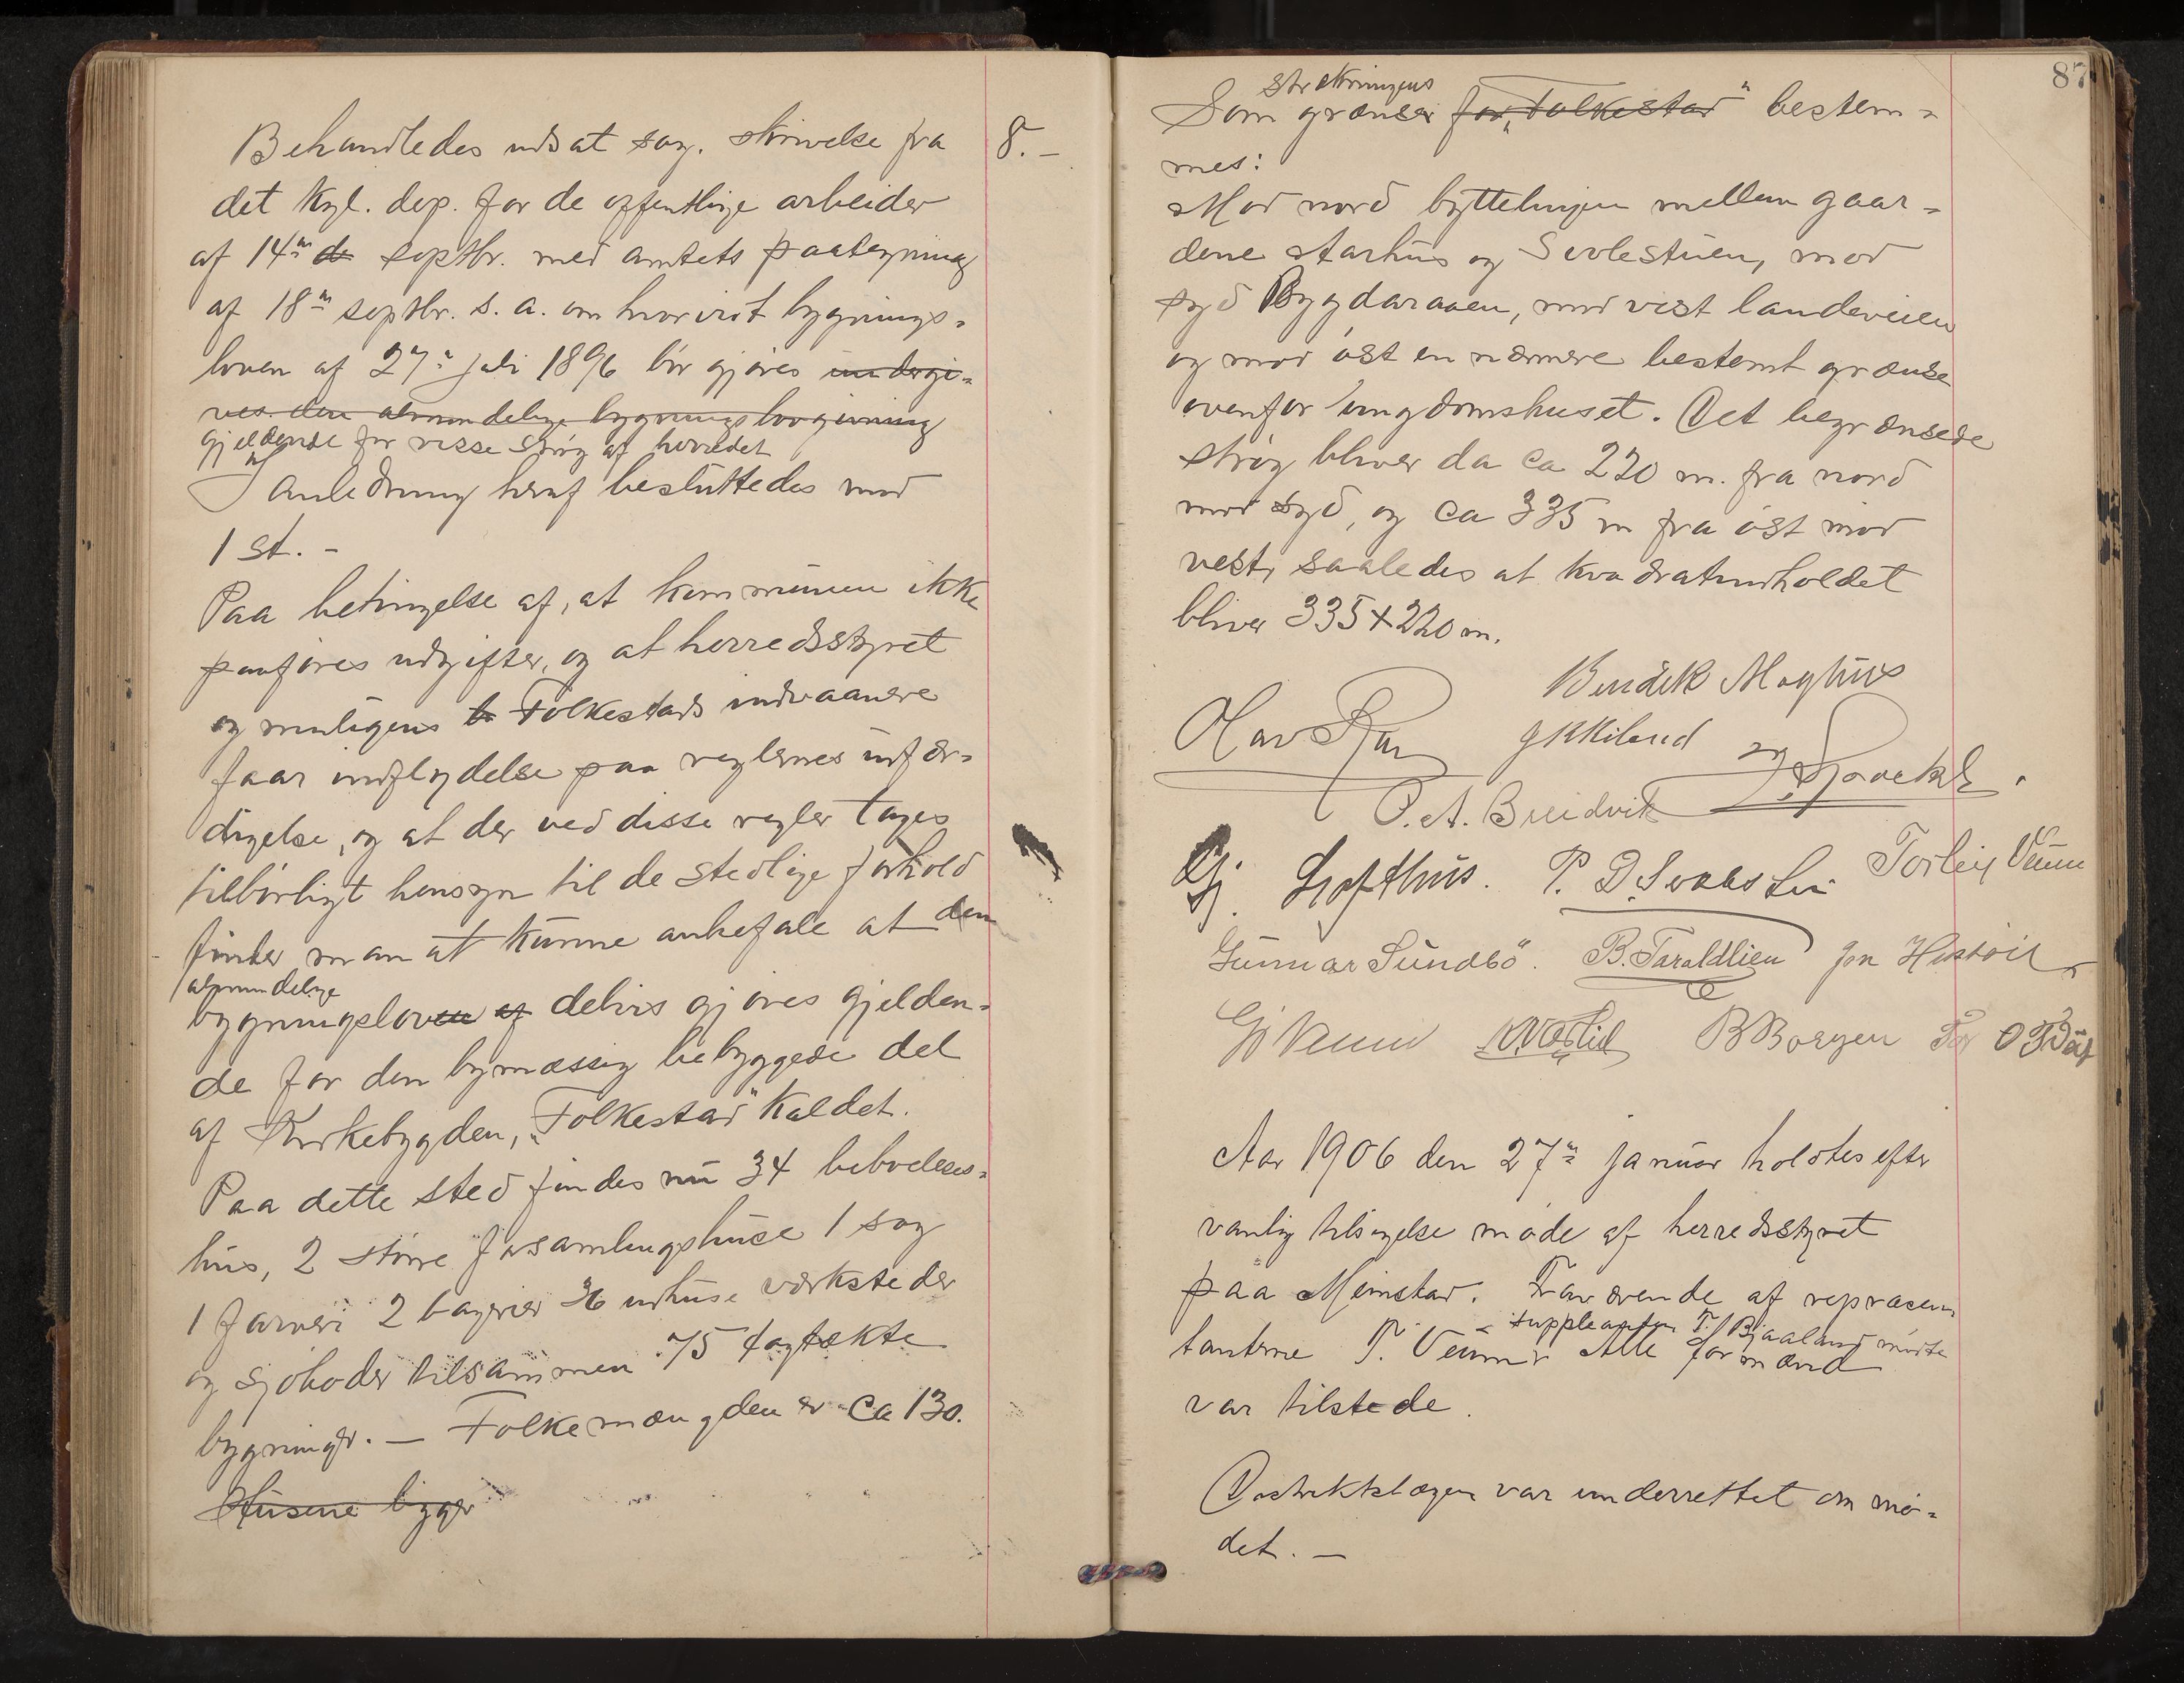 8. –
Behandledes udsat sag. skrivelse fra
det kgl. dep. for de offentlige arbeider
af 14de septbr. med amtets paategning
af 18de septbr. s. a. om hvorvidt bygnings-
loven af 27de juli 1896 bör gjöres undergi-
ves den almindelige bygningslovgivning
gjeldende for visse strög af herredet
I anledning heraf besluttedes mod
1 st. –
Paa betingelse af, at kommunen ikke
paaföres udgifter, og at herredsstyret
og muligens Folkestads indvaanere
faar indflydelse paa reglernes udfær-
digelse, og at der ved disse regler tages
tilbörligt hensyn til de stedlige forhold
finder man at kunne anbefale at den
almindelige
bygningsloven af delvis gjöres gjelden-
de for den bymæssig bebyggede del
af Kirkebygden, „Folkestad" kaldet.
Paa dette sted findes nu 34 beboelses-
hus, 2 större forsamlingshuse 1 sag
1 farveri 2 bagerier 36 udhuse værksteder
og sjöboder tilsammen 75 tagtækte
bygninger. – Folkemængden er ca 130.
Husene ligger
87
strækningens
Som grænser for „Folkestad" bestem-
mes:
Mod nord byttelinjen mellem gaar-
dene Aarhus og Svolestuen, mod
syd Bygdaraaen, mod vest landeveien
og mod öst en nærmere bestemt grænse
ovenfor ungdomshuset. Det begrænsede
strög bliver da ca 220 m. fra nord
mod syd, og ca 335 m fra öst mod
vest, saaledes at kvadratindholdet
bliver 335 + 220 m.
Bendik Maghus
Olav
G K Kiland
O. A. Breidvik
Gj. Lofthus. P. D. Torleif Venm
Gunnar Sundbö. B. Taraldlien Jon
Gj Venm B Borgen
Aar 1906 den 27de januar holdtes efter
vanlig tilsigelse möde af herredsstyret
paa Meinstad. Fraværende af repræsen-
suppleanten T. Bjaaland mödte
tanterne T. Venm Alle formænd
var tilstede.
Distriktslægen var underrettet om mö-
det. –